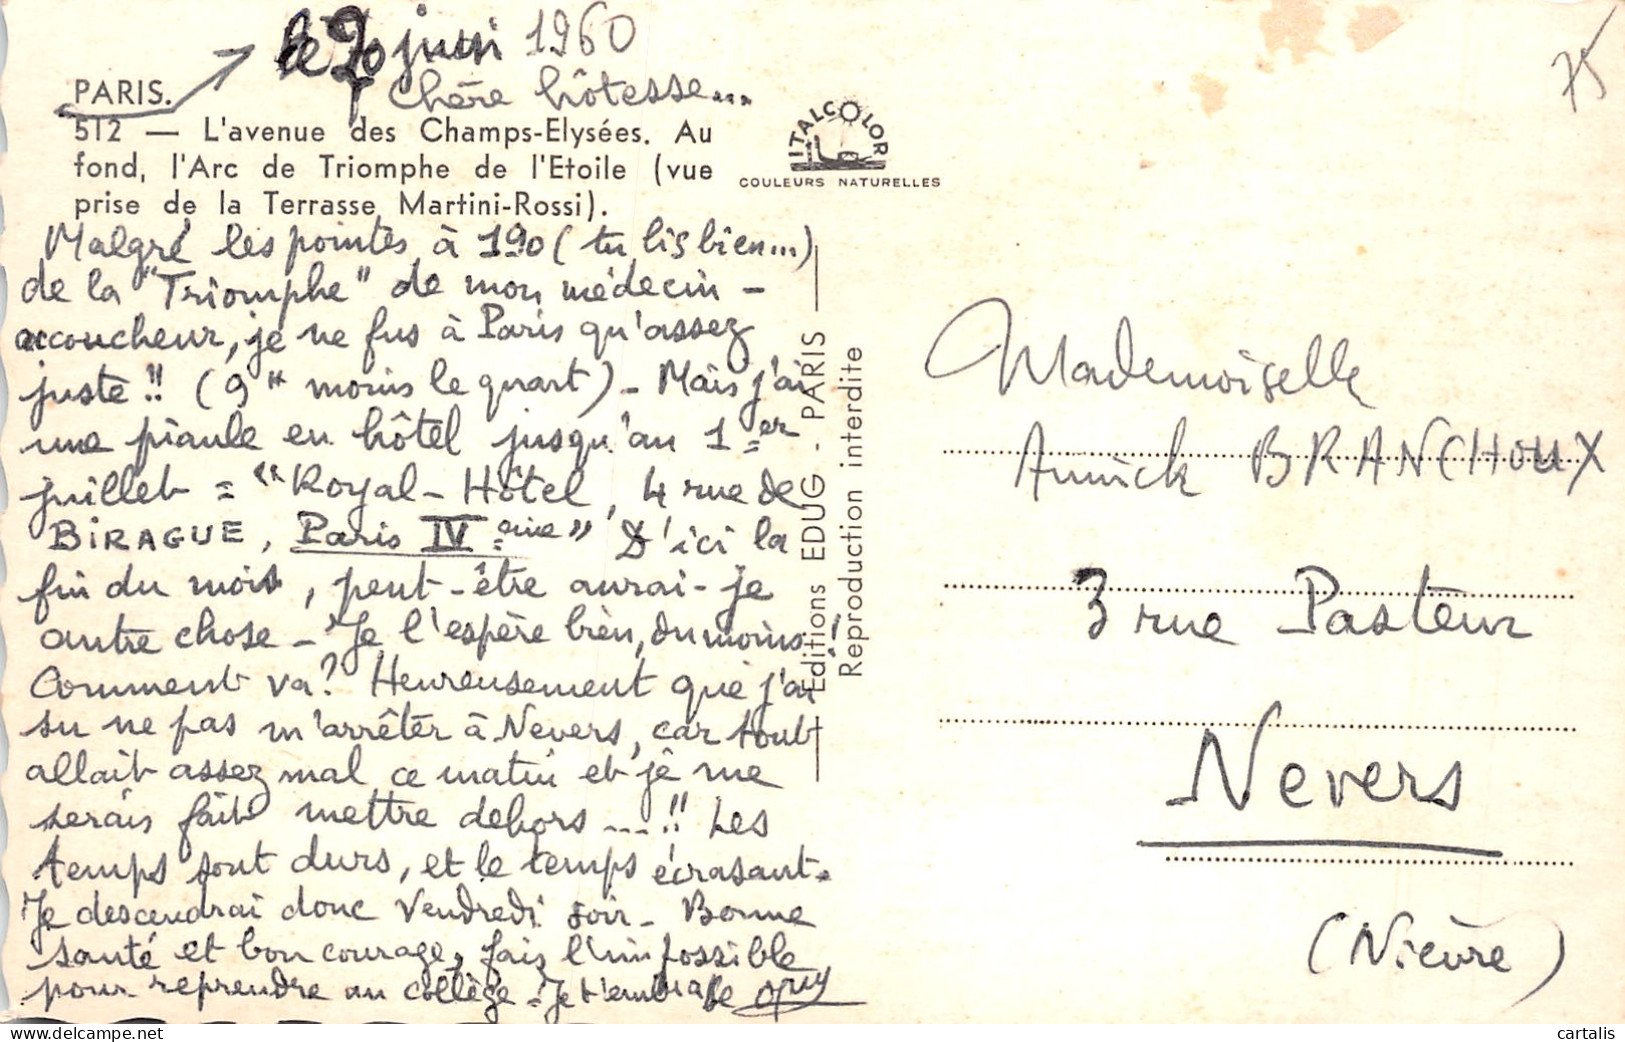 le 20 juin 1960
75
PARIS.
Chère hôtesse...
512 — L'avenue des Champs-Elysées. Au
fond, l'Arc de Triomphe de l'Etoile (vue
prise de la Terrasse Martini-Rossi).
ITALCOLOR
COULEURS NATURELLES
Malgré les pointes à 190 (tu lis bien...)
de la "Triomphe" de mon médecin -
accoucheur, je ne fus à Paris qu'assez
juste !! (9 h moins le quart) - Mais j'ai
une piaule en hôtel jusqu'au 1er
juillet = "Royal-Hôtel, 4 rue de
BIRAGUE, Paris IV ème" D'ici la
fin du mois, peut-être aurai-je
autre chose - Je l'espère bien, du moins !
Comment va ? Heureusement que j'ai
su ne pas m'arrêter à Nevers, car tout
allait assez mal ce matin et je me
serais fait mettre dehors ...!! Les
temps sont durs, et le temps écrasant.
Je descendrai donc Vendredi soir - Bonne
santé et bon courage, fais l'impossible
pour reprendre au collège - Je t'embrasse
Editions EDUG - PARIS
Reproduction interdite
Mademoiselle
Annick BRANCHOUX
3 rue Pasteur
Nevers
(Nièvre)
delcampe.net
cartalis